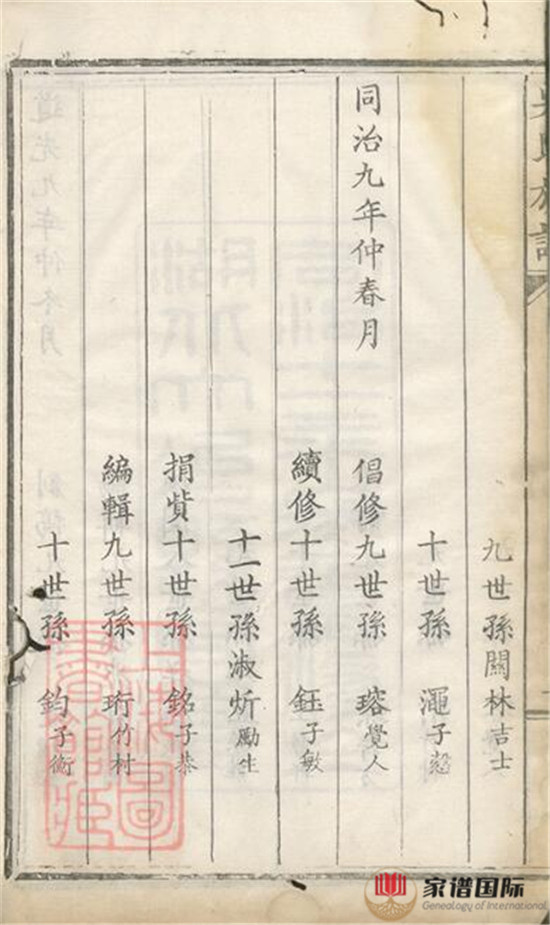 吳氏族譜
九世孫 關林吉士
十世孫 澠子
同治九年仲春月 倡修九世孫 瑢覺人
續修十世孫 鈺子敏
十一世孫淑炘勵生
捐貲十世孫 銘子恭
編輯九世孫 珩竹村
十世孫 鈞子衡
道光九年仲冬月
家谱国际
Genealogy of International